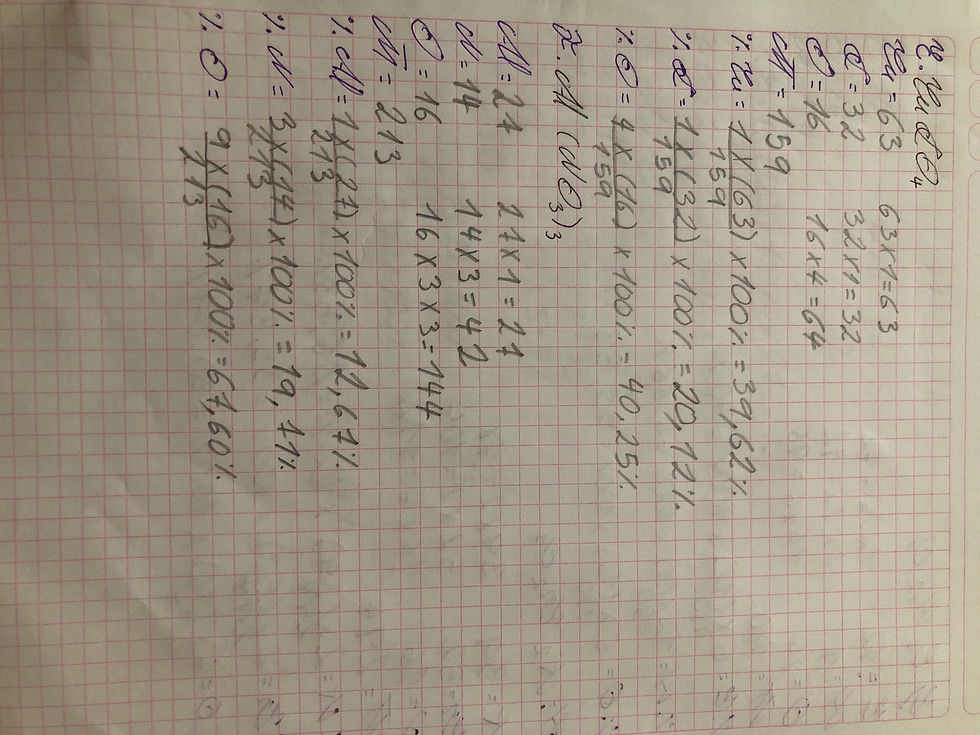 CuSO₄
Cu = 63 63 x 1 = 63
S = 32 32 x 1 = 32
O = 16 16 x 4 = 64
M̄ = 159
% Cu = 1 x (63) x 100% = 39,62%
159
% S = 1 x (32) x 100% = 20,12%
159
% O = 4 x (16) x 100% = 40,25%
159
z. Al (NO₃)₃
Al = 27 27 x 1 = 27
N = 14 14 x 3 = 42
O = 16 16 x 3 x 3 = 144
M̄ = 213
% Al = 1 x (27) x 100% = 12,67%
213
% N = 3 x (14) x 100% = 19,71%
213
% O = 9 x (16) x 100% = 67,60%
213